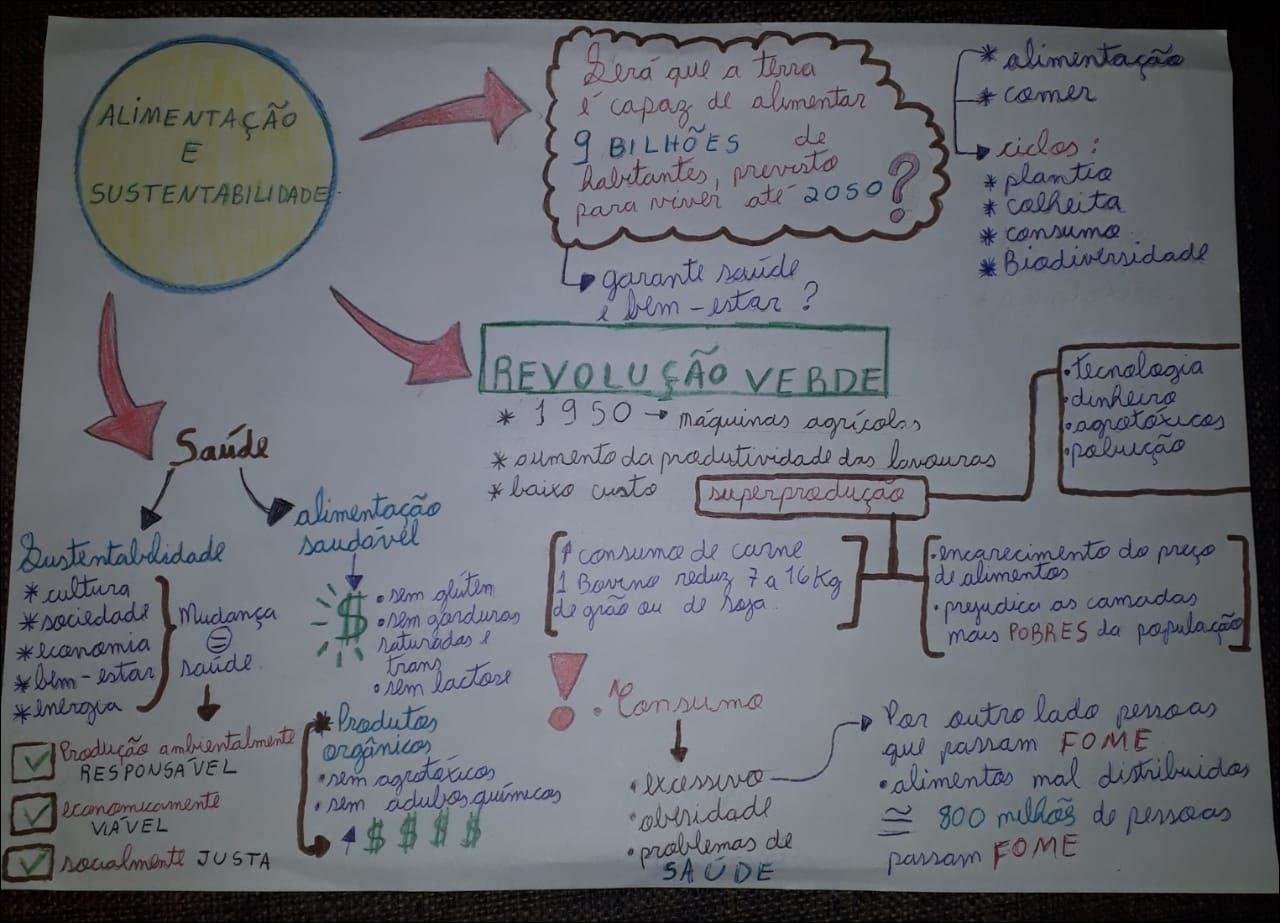 ALIMENTAÇÃO
E
SUSTENTABILIDADE
Será que a terra
é capaz de alimentar
9 BILHÕES de
habitantes, previsto
para viver até 2050?
garante saúde
e bem-estar?
* alimentação
* comer
ciclos:
* plantio
* colheita
* consumo
* Biodiversidade
REVOLUÇÃO VERDE
* 1950 → máquinas agrícolas
* aumento da produtividade das lavouras
* baixo custo
superprodução
• tecnologia
• dinheiro
• agrotóxicos
• poluição
↑ consumo de carne
1 Bovino reduz 7 a 16 Kg
de grão ou de soja.
• encarecimento do preço
de alimentos
• prejudica as camadas
mais POBRES da população
Saúde
Sustentabilidade
* cultura
* sociedade
* economia
* bem-estar
* energia
Mudança
=
saúde
✓ Produção ambientalmente
RESPONSÁVEL
✓ economicamente
VIÁVEL
✓ socialmente JUSTA
alimentação
saudável
$
• sem glúten
• sem gorduras
saturadas e
trans
• sem lactose
* Produtos
orgânicos
• sem agrotóxicos
• sem adubos químicos
↑ $ $ $ $
! • Consumo
• excessivo
• obesidade
• problemas de
SAÚDE
Por outro lado pessoas
que passam FOME
• alimentos mal distribuidos
≅ 800 milhões de pessoas
passam FOME